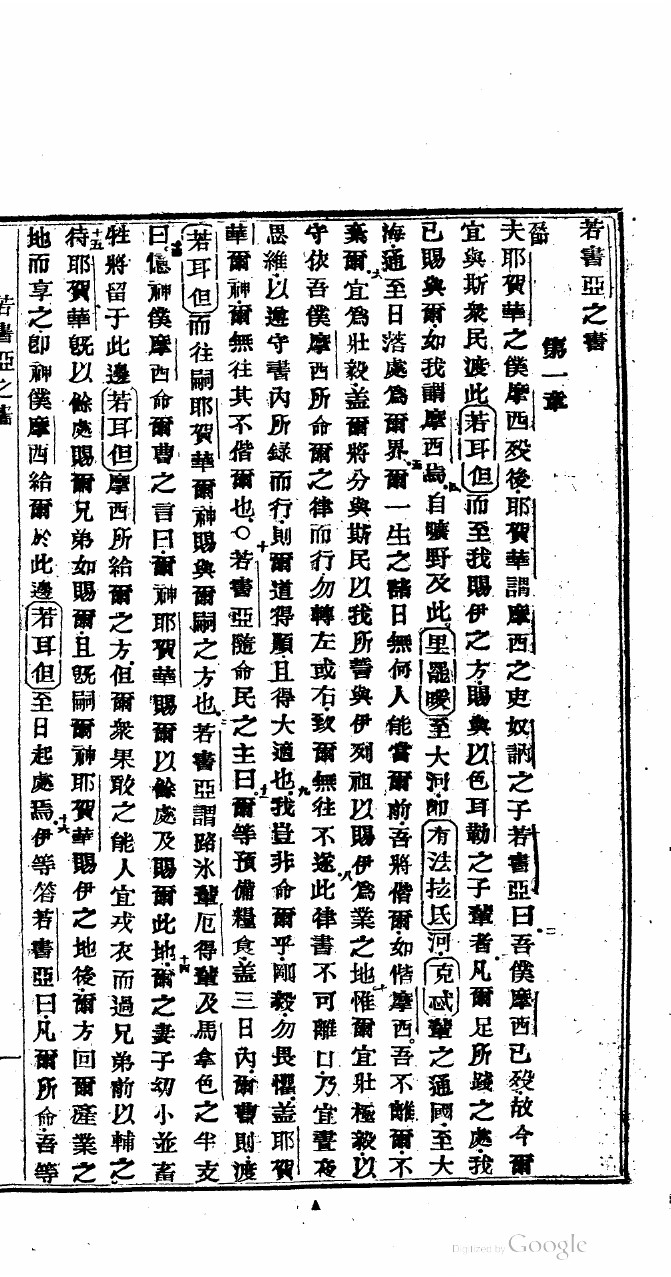 若書亞之書
第一章
夫耶賀華之僕摩西歿後耶賀華謂摩西之吏奴訥之子若書亞曰二吾僕摩西已歿故今爾
宜與斯衆民渡此若耳但而至我賜伊之方賜與以色耳勒之子輩者三凡爾足所踐之處我
已賜與爾如我謂摩西焉四自曠野及此里罷暖至大河即有法拉氏河克忒輩之通國至大
海通至日落處爲爾界五爾一生之諸日無何人能當爾前吾將偕爾如偕摩西吾不離爾不
棄爾六宜爲壯毅蓋爾將分與斯民以我所誓與伊列祖以賜伊爲業之地七惟爾宜壯極毅以
守依吾僕摩西所命爾之律而行勿轉左或右致爾無往不遂八此律書不可離口乃宜晝夜
思維以遵守書內所錄而行則爾道得順且得大適也九我豈非命爾乎剛毅勿畏懼蓋耶賀
華爾神爾無往其不偕爾也○十若書亞隨命民之主曰十一爾等預備糧食蓋三日內爾曹則渡
若耳但而往嗣耶賀華爾神賜與爾嗣之方也十二若書亞謂路氷輩厄得輩及馬拿色之半支
曰十三憶神僕摩西命爾曹之言曰爾神耶賀華賜爾以餘處及賜爾此地十四爾之妻子幼小並畜
牲將留于此邊若耳但摩西所給爾之方但爾衆果敢之能人宜戎衣而過兄弟前以輔之
十五待耶賀華既以餘處賜爾兄弟如賜爾且既嗣爾神耶賀華賜伊之地後爾方回爾產業之
地而享之即神僕摩西給爾於此邊若耳但至日起處焉十六伊等答若書亞曰凡爾所命吾等
若書亞之書
Digitized by Google